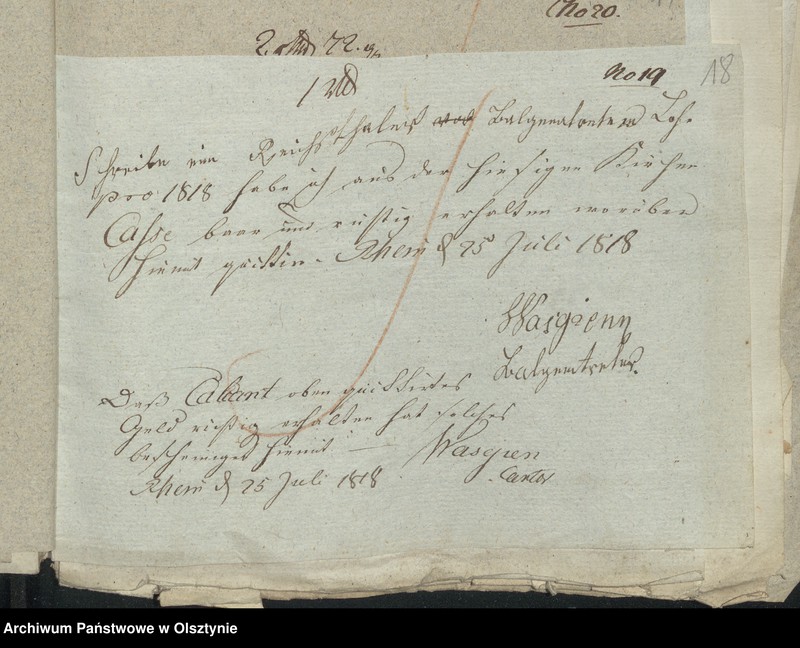 No 20.
No 19
18
1 Rtl
Schreibe ein Reichsthaler Balgentreter Lohn
pro 1818 habe ich aus der hiesigen Kirchen
Casse baar und richtig erhalten worüber
hiemit quittire. Rhein d 25 Juli 1818
Wasgienn
Balgentreter.
Daß Calcant oben quittirtes
Geld richtig erhalten hat solches
bescheiniget hiemit
Wasgien
Rhein d 25 Juli 1818
Cantor
Archiwum Państwowe w Olsztynie